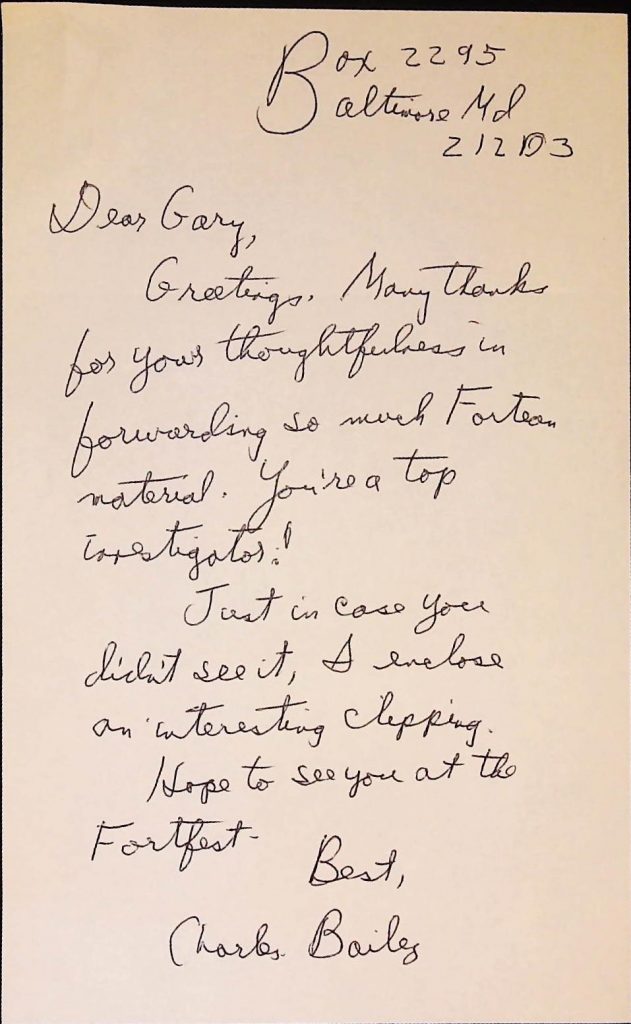 Box 2295
Baltimore Md
21203
Dear Gary,
Greetings. Many thanks
for your thoughtfulness in
forwarding so much Fortean
material. You're a top
investigator!
Just in case you
didn't see it, I enclose
an interesting clipping.
Hope to see you at the
Fortfest-
Best,
Charles Bailey